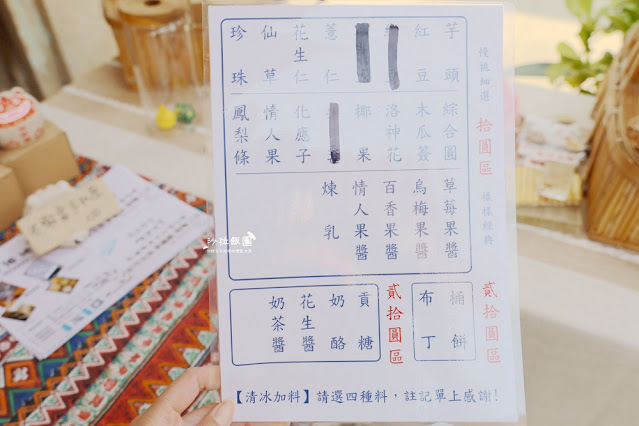 慢挑細選 拾圓區 樣樣經典
芋頭
紅豆
薏仁
花生仁
仙草
珍珠
綜合圓
木瓜簽
洛神花
椰果
化應子
情人果
鳳梨條
草莓果醬
烏梅果醬
百香果醬
情人果醬
煉乳
貳拾圓區
桶餅
布丁
貳拾圓區
貢糖
奶酪
花生醬
奶茶醬
【清冰加料】請選四種料，註記單上感謝!
沙拉飯團